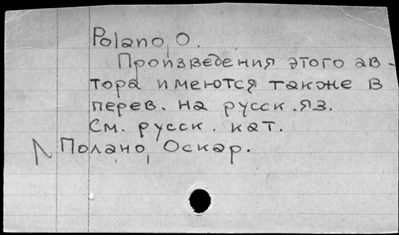 Polano, O.
Произведения этого ав-
тора имеются также в
перев. на русск. яз.
См. русск. кат.
Полано, Оскар.